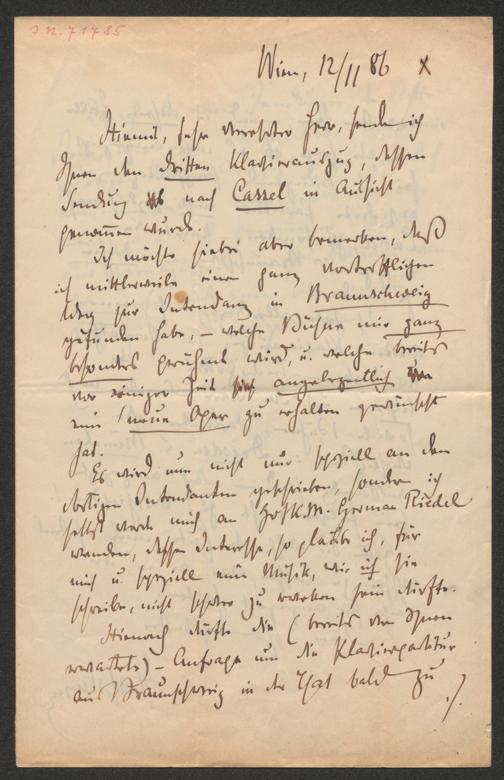 I.N. 71785
Wien, 12/11 86 x
Hiemit, sehr verehrter Herr, sende ich
Ihnen den dritten Klavierauszug, dessen
Sendung nach Cassel in Aussicht
genommen wurde.
Ich möchte hiebei aber bemerken, daß
ich mittlerweile einen ganz vortrefflichen
Weg zur Intendanz in Braunschweig
gefunden habe, – welche Bühne mir ganz
besonders gerühmt wird, u. welche bereits
vor einiger Zeit angelegentlich von
mir neue Oper zu erhalten gewünscht
hat.
Es wird nun nicht nur speziell an den
dortigen Intendanten geschrieben, sondern ich
selbst werde mich an HofK.M. Herman Riedel
wenden, dessen Interesse, so glaube ich, für
mich u. speziell meine Musik, wie ich sie
schreibe, nicht schwer zu wecken sein dürfte.
Hienach dürfte die (bereits von Ihnen
erwartete) – Anfrage um die Klavierpartitur
aus Braunschweig in der That bald zu
./.